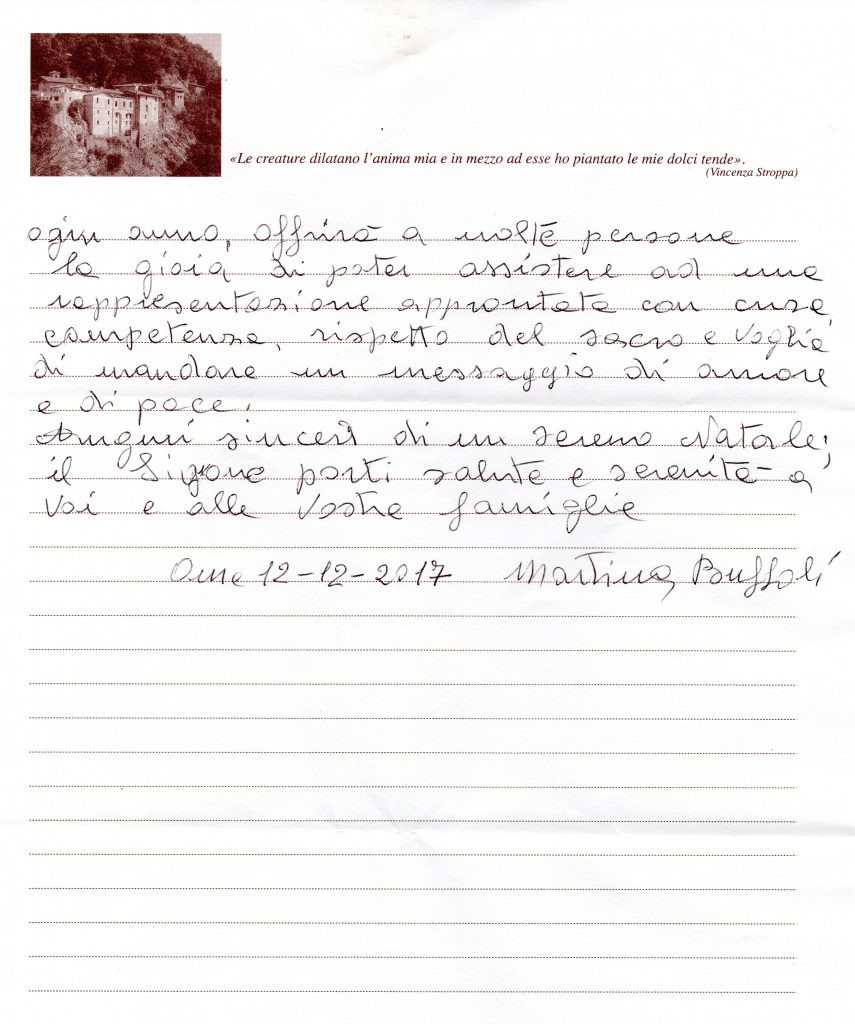 «Le creature dilatano l'anima mia e in mezzo ad esse ho piantato le mie dolci tende».
(Vincenza Stroppa)
ogni anno, offrirà a molte persone
la gioia di poter assistere ad una
rappresentazione approntata con cura,
competenza, rispetto del sacro e voglia
di mandare un messaggio di amore
e di pace.
Auguri sinceri di un sereno Natale;
il Signore porti salute e serenità a
voi e alle vostre famiglie
Ome 12-12-2017 Martina Buffoli